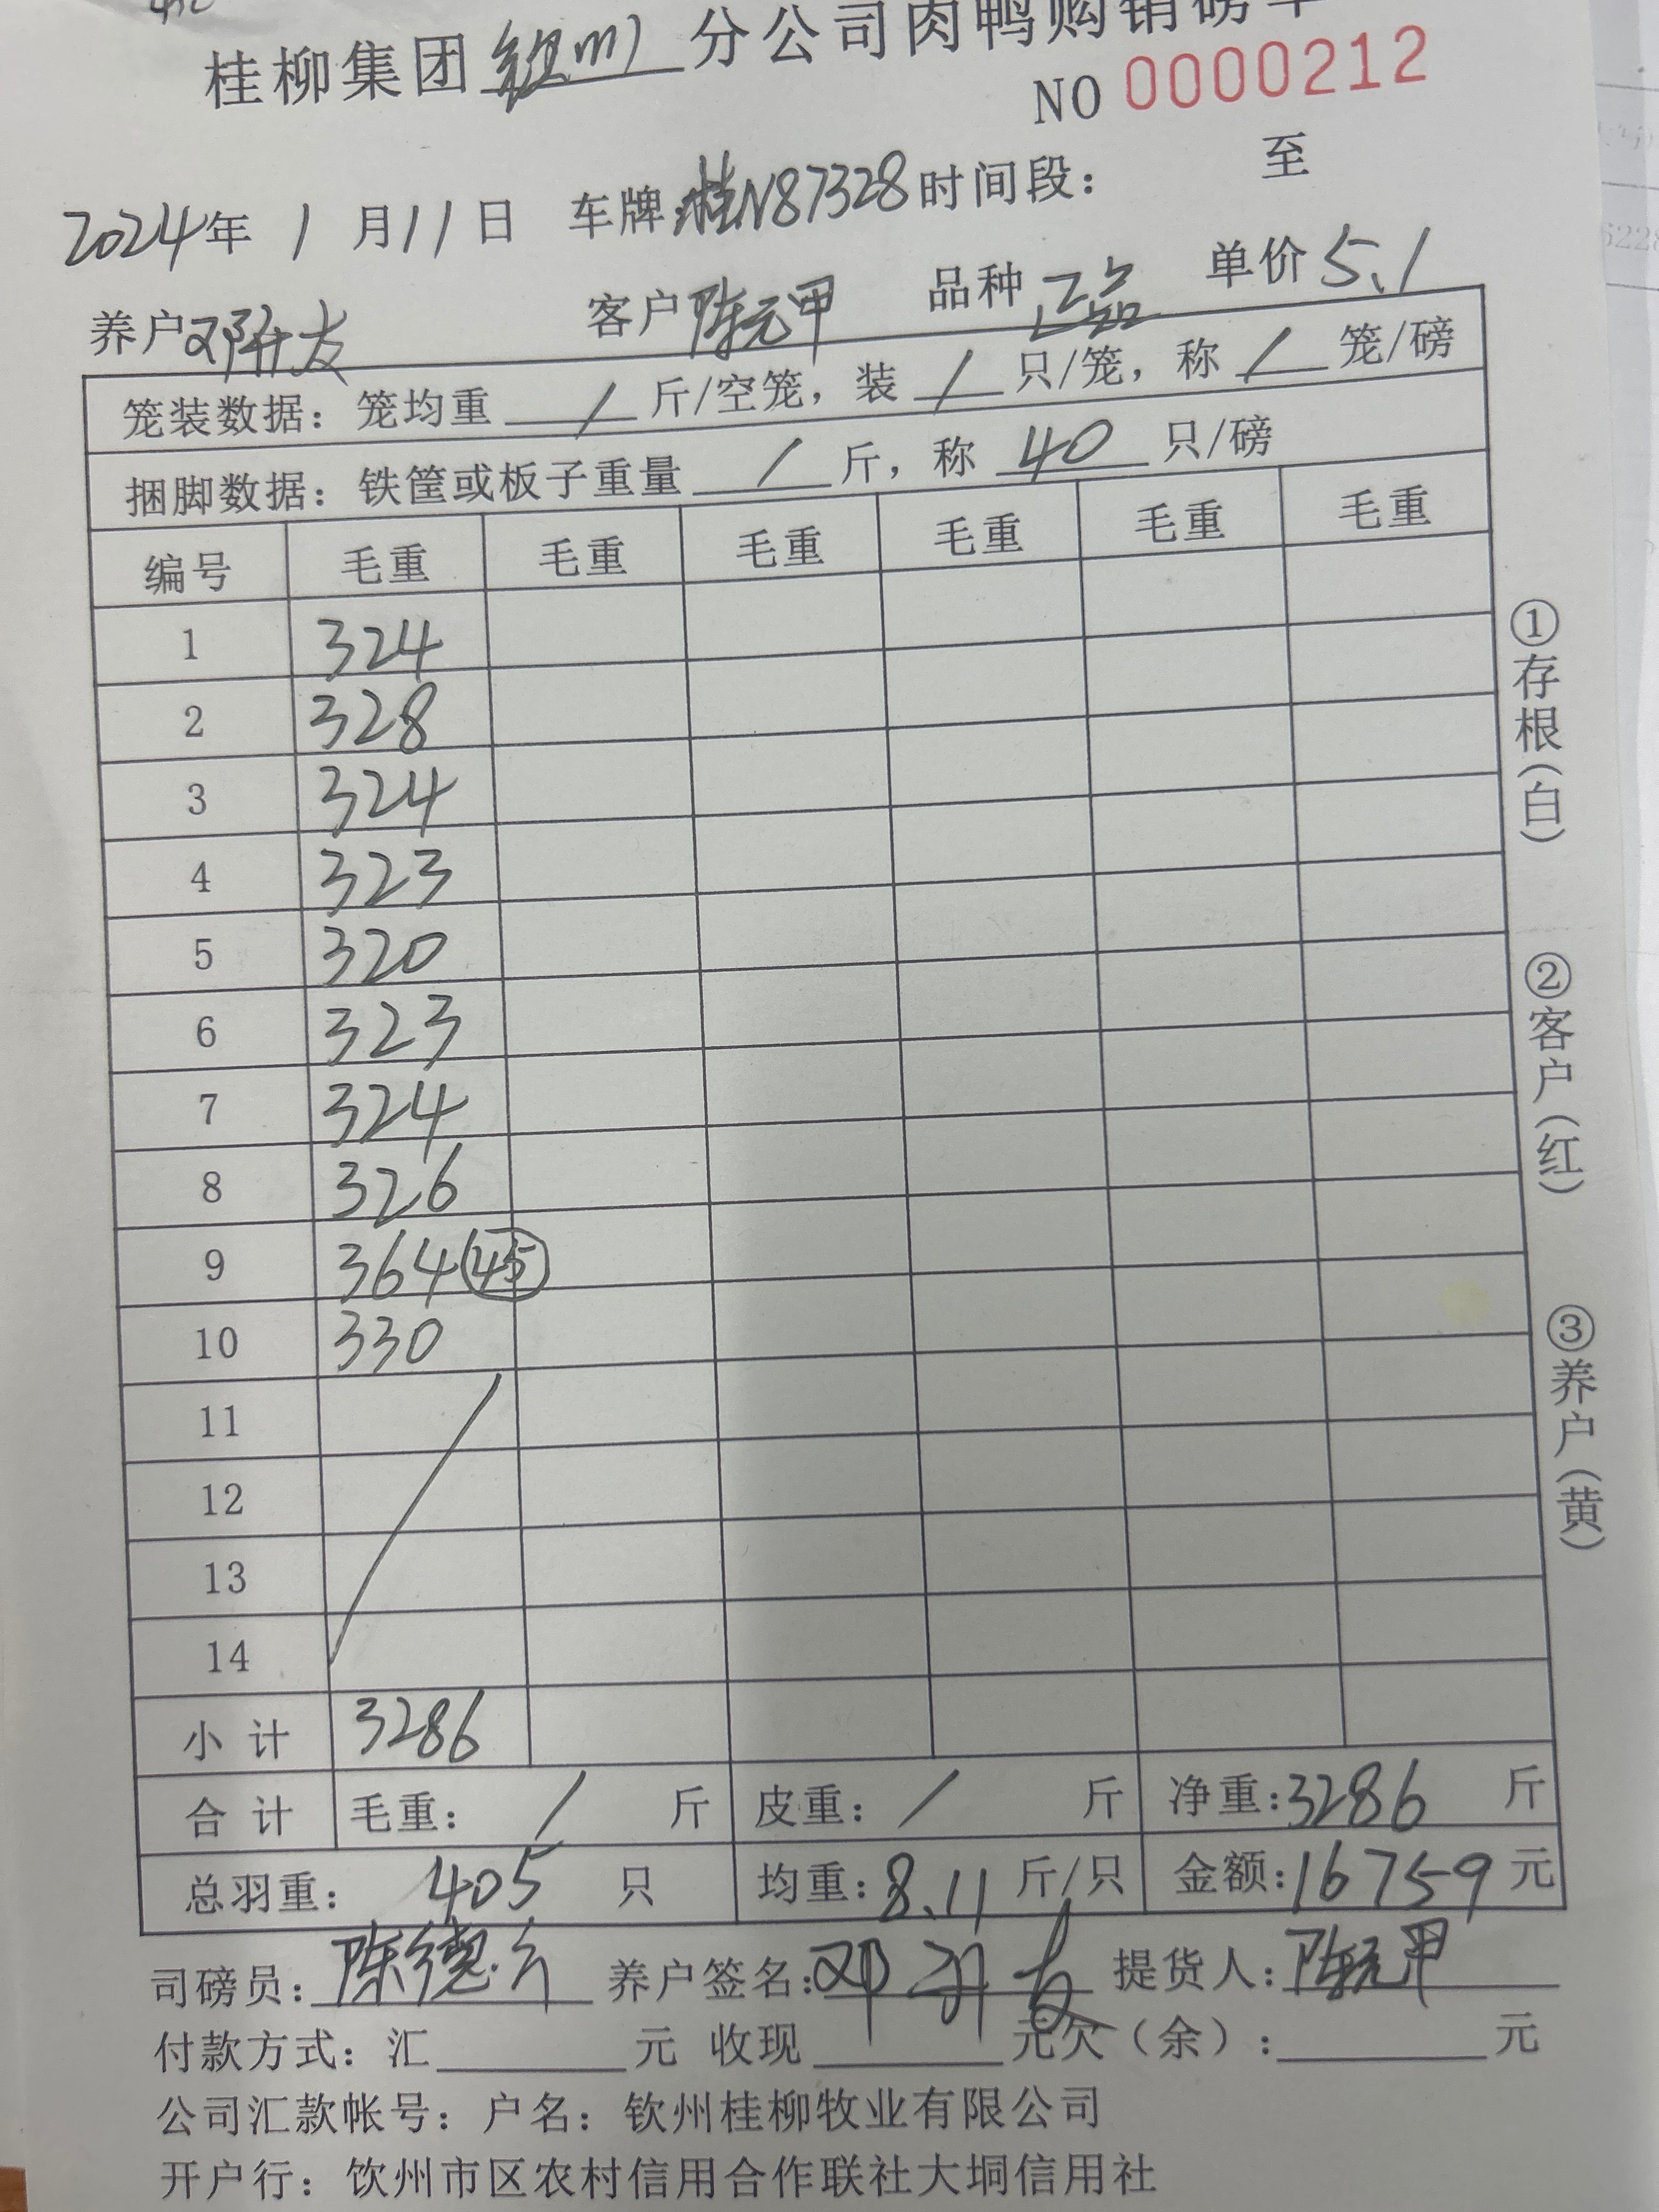 桂柳集团钦州分公司肉鸭购销磅单
NO 0000212
2024年 1 月11日 车牌:桂N87328时间段: 至
养户邓升友 客户陈元甲 品种正品 单价5.1
笼装数据: 笼均重 / 斤/空笼, 装 / 只/笼, 称 / 笼/磅
捆脚数据: 铁筐或板子重量 / 斤, 称 40 只/磅
编号 毛重 毛重 毛重 毛重 毛重 毛重
1 324
2 328
3 324
4 323
5 320
6 323
7 324
8 326
9 364 (45)
10 330
11
12
13
14
小计 3286
合计 毛重: / 斤 皮重: / 斤 净重:3286 斤
总羽重: 405 只 均重:8.11斤/只 金额:16759元
司磅员: 陈德 养户签名:邓升友 提货人:陈元甲
付款方式: 汇 元 收现 元欠(余): 元
公司汇款帐号: 户名: 钦州桂柳牧业有限公司
开户行: 钦州市区农村信用合作联社大垌信用社
①存根(白)
②客户(红)
③养户(黄)